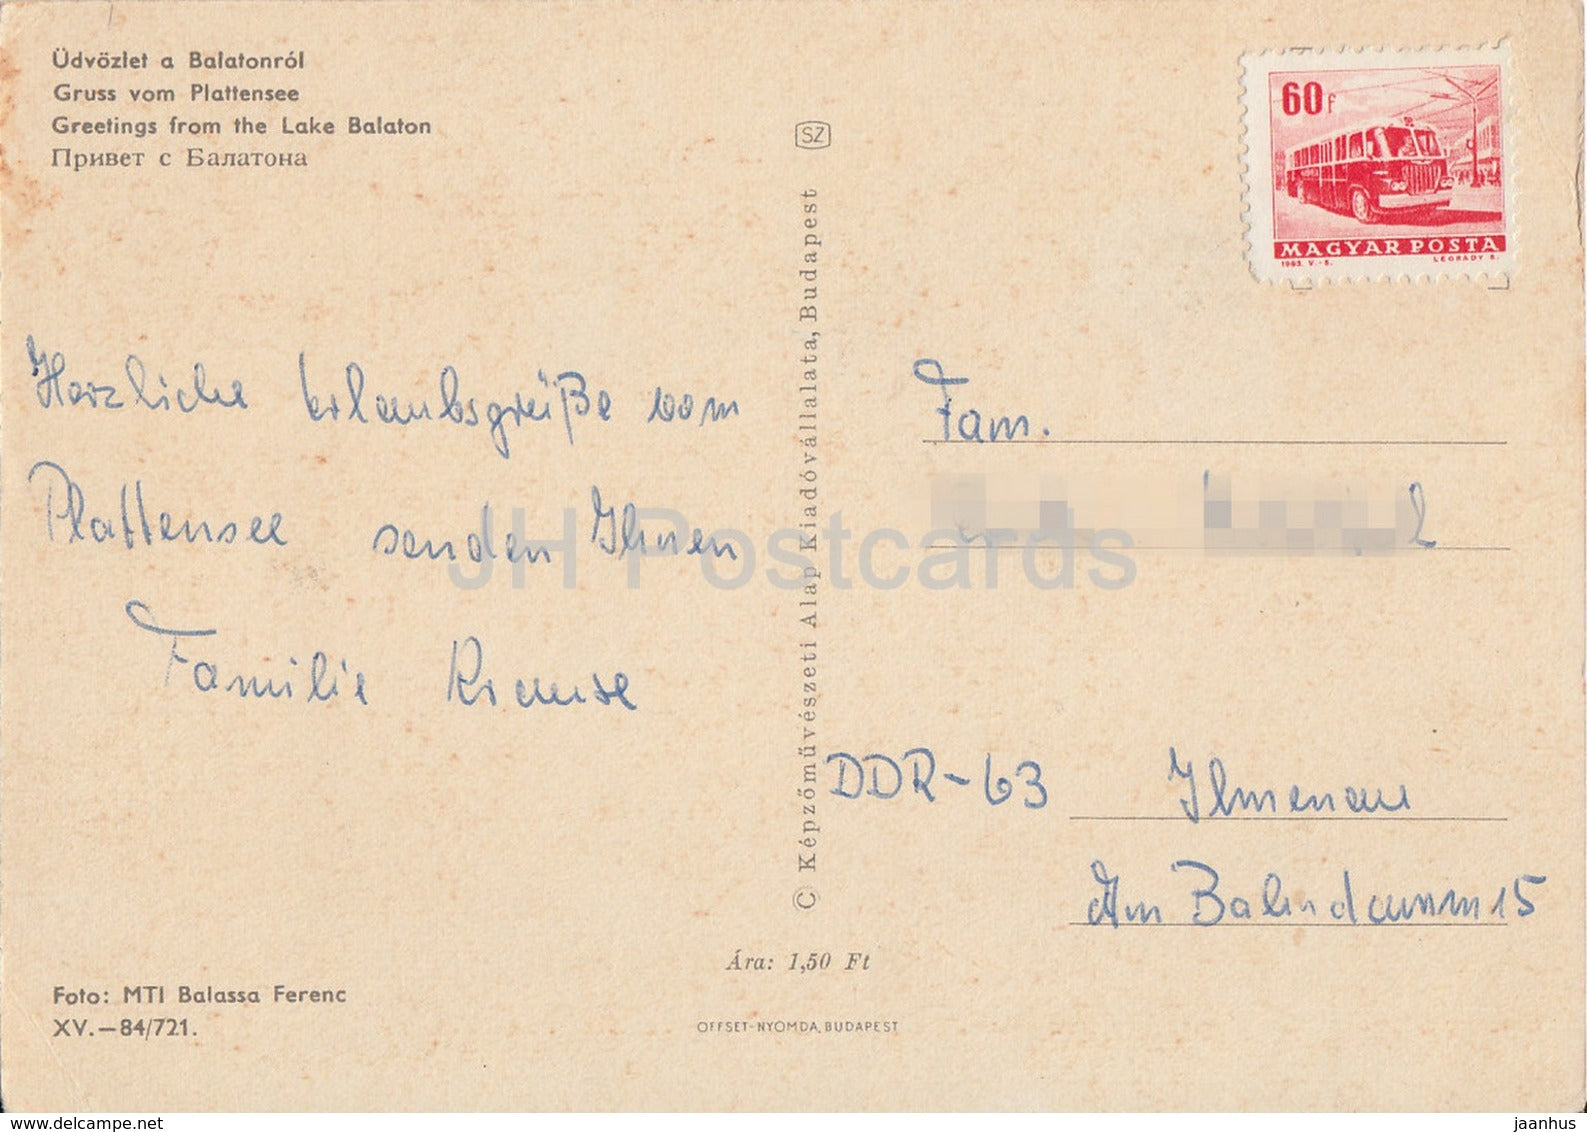 Üdvözlet a Balatonról
Gruss vom Plattensee
Greetings from the Lake Balaton
Привет с Балатона
SZ
60f
MAGYAR POSTA
1963. V.-5. LÉGRÁDY S.
Herzliche Urlaubsgrüße vom
Plattensee senden Ihnen
Familie Krause
© Képzőművészeti Alap Kiadóvállalata, Budapest
Fam.
DDR-63 Ilmenau
Am Bahndamm 15
Ára: 1,50 Ft
Foto: MTI Balassa Ferenc
XV.—84/721.
OFFSET-NYOMDA, BUDAPEST
JH Postcards
www.delcampe.net
jaanhus